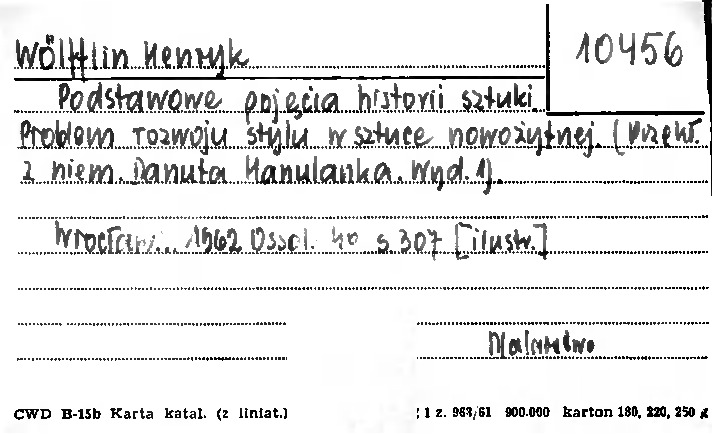 Wölfflin Henryk
10456
Podstawowe pojęcia historii sztuki.
Problem rozwoju stylu w sztuce nowożytnej. (Przekł.
z niem. Danuta Hanulanka. Wyd. 1).
Wrocław... 1962 Ossol. 4o s. 307 [ilustr.]
Malarstwo
CWD B-15b Karta katal. (z liniat.)
1 z. 963/61 900.000 karton 180, 220, 250 g